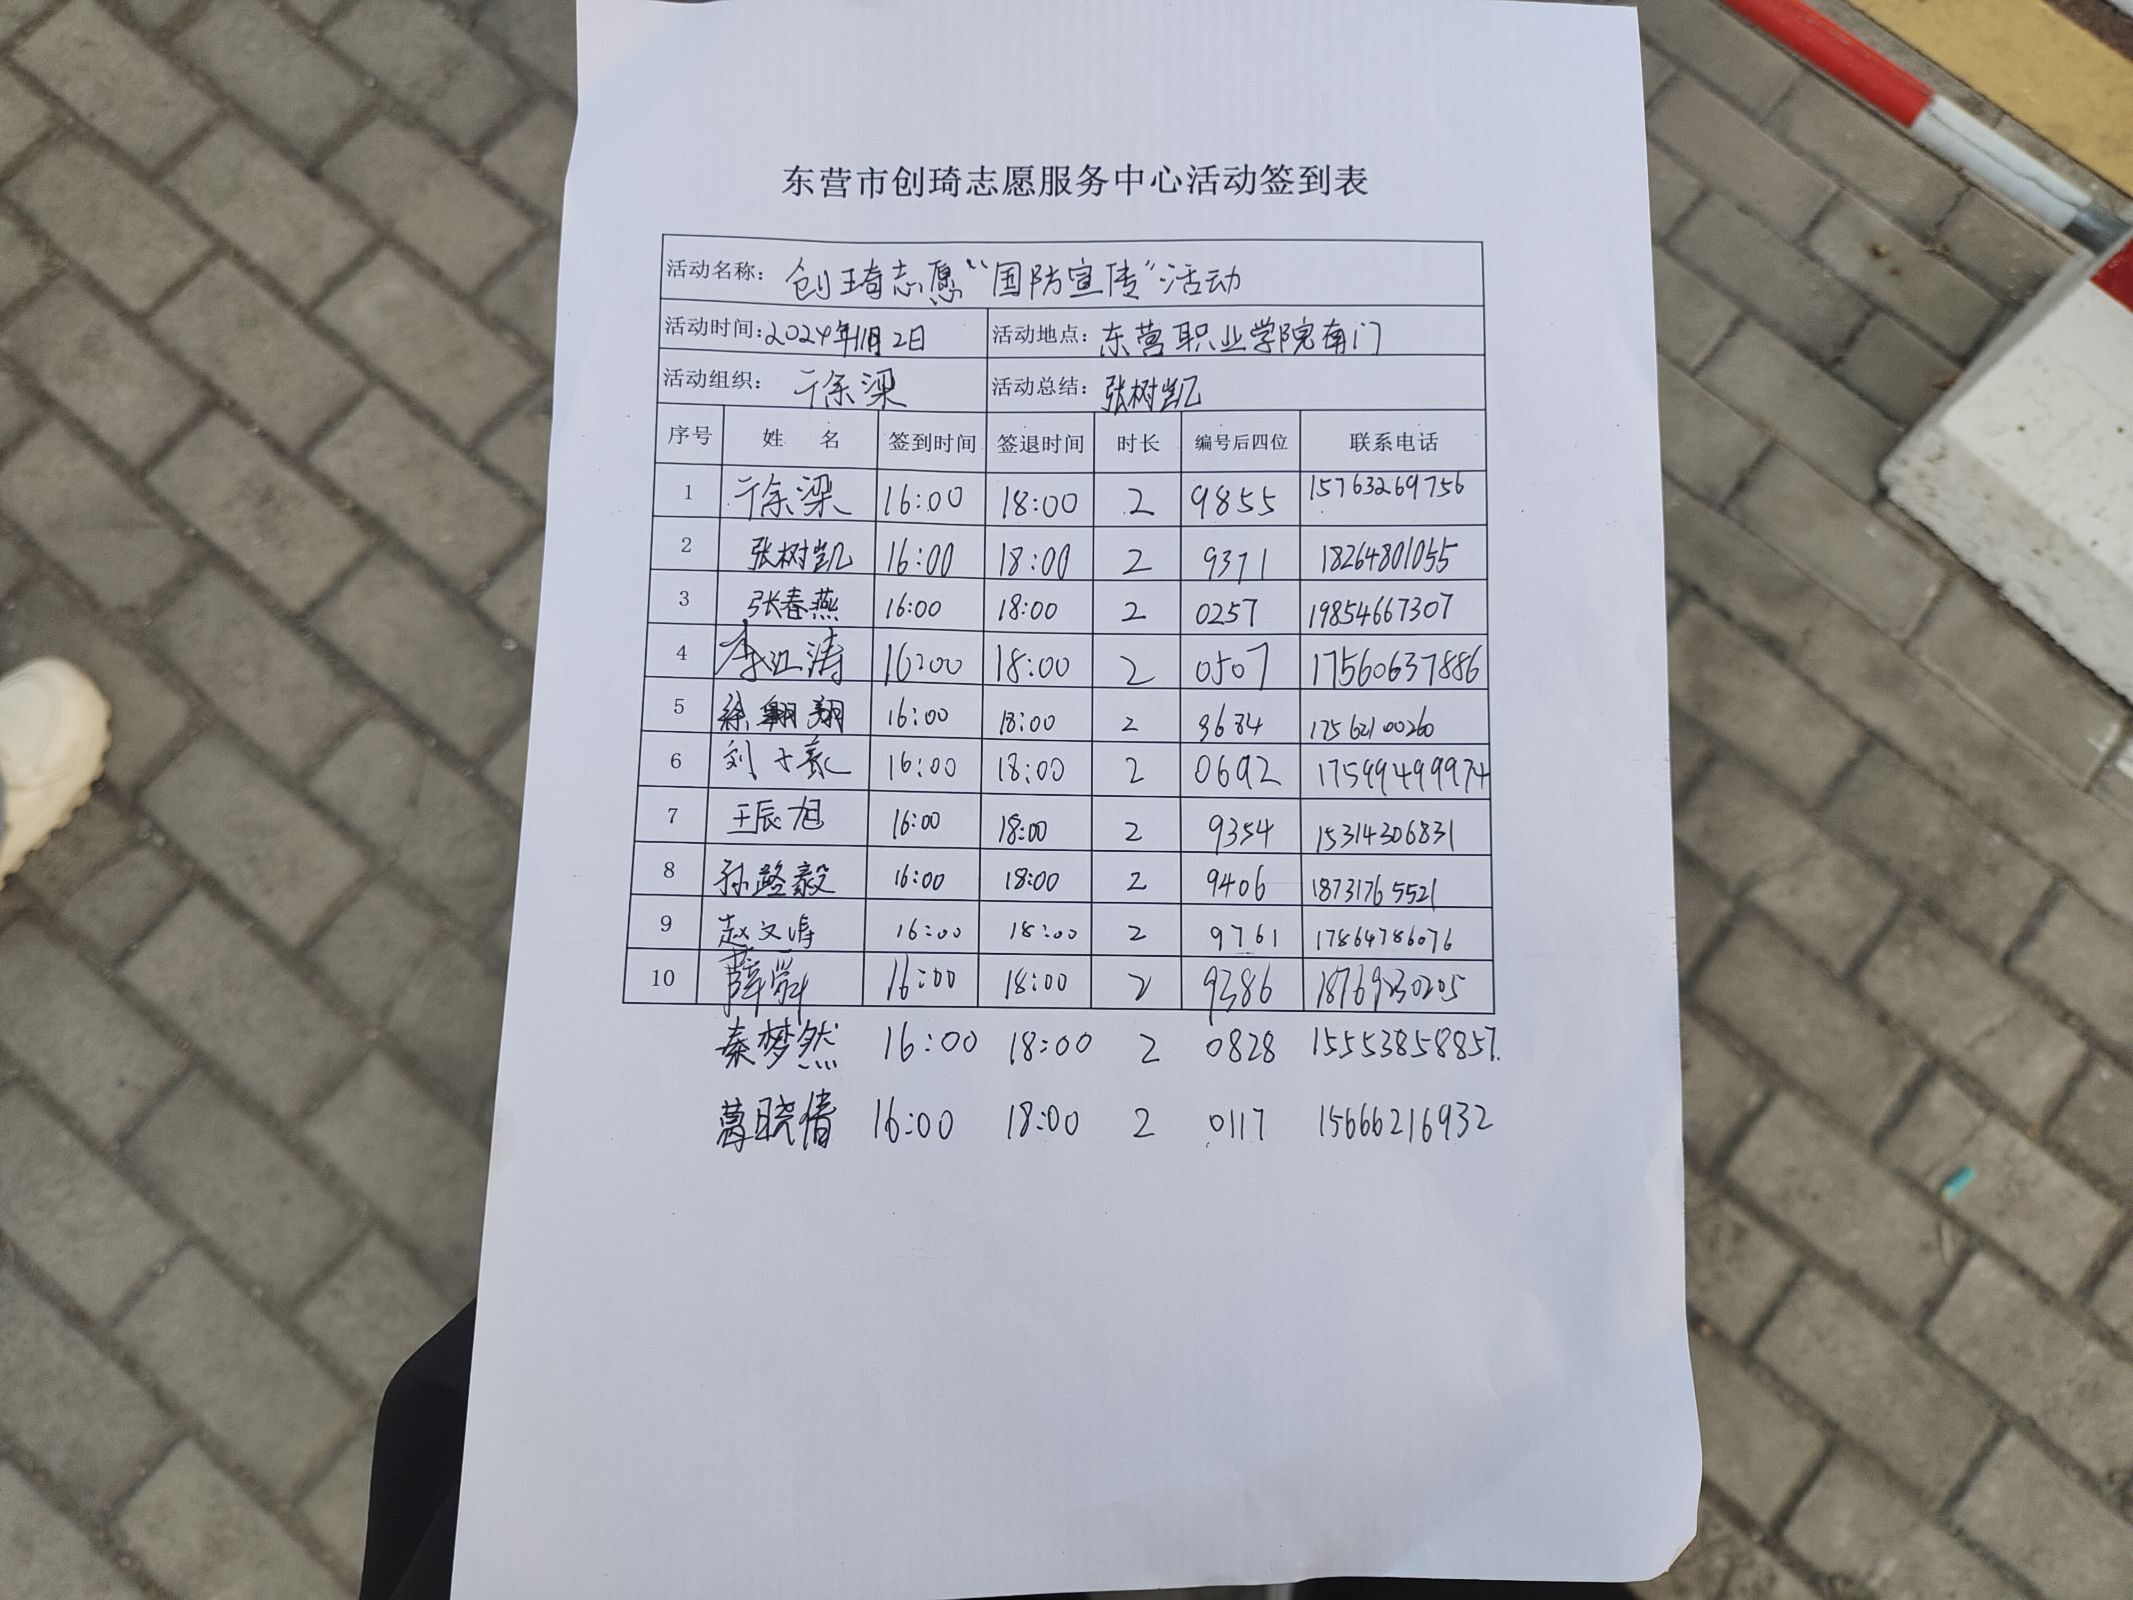 东营市创琦志愿服务中心活动签到表
活动名称: 创琦志愿“国防宣传”活动
活动时间:2024年11月2日 活动地点: 东营职业学院南门
活动组织: 徐梁 活动总结: 张树凯
序号 姓 名 签到时间 签退时间 时长 编号后四位 联系电话
1 徐梁 16:00 18:00 2 9855 15763269756
2 张树凯 16:00 18:00 2 9371 18264801055
3 张春燕 16:00 18:00 2 0257 19854667307
4 李江涛 16:00 18:00 2 0507 17560637886
5 徐翱翔 16:00 18:00 2 17562100260
6 刘 16:00 18:00 2 0692 17599499974
7 王辰旭 16:00 18:00 2 9354 15314306831
8 孙路毅 16:00 18:00 2 9406 18731765521
9 赵文涛 16:00 18:00 2 9761 17864786076
10 薛 16:00 18:00 2 9386 18769230205
秦梦然 16:00 18:00 2 0828 15553858857
葛晓倩 16:00 18:00 2 0117 15666216932